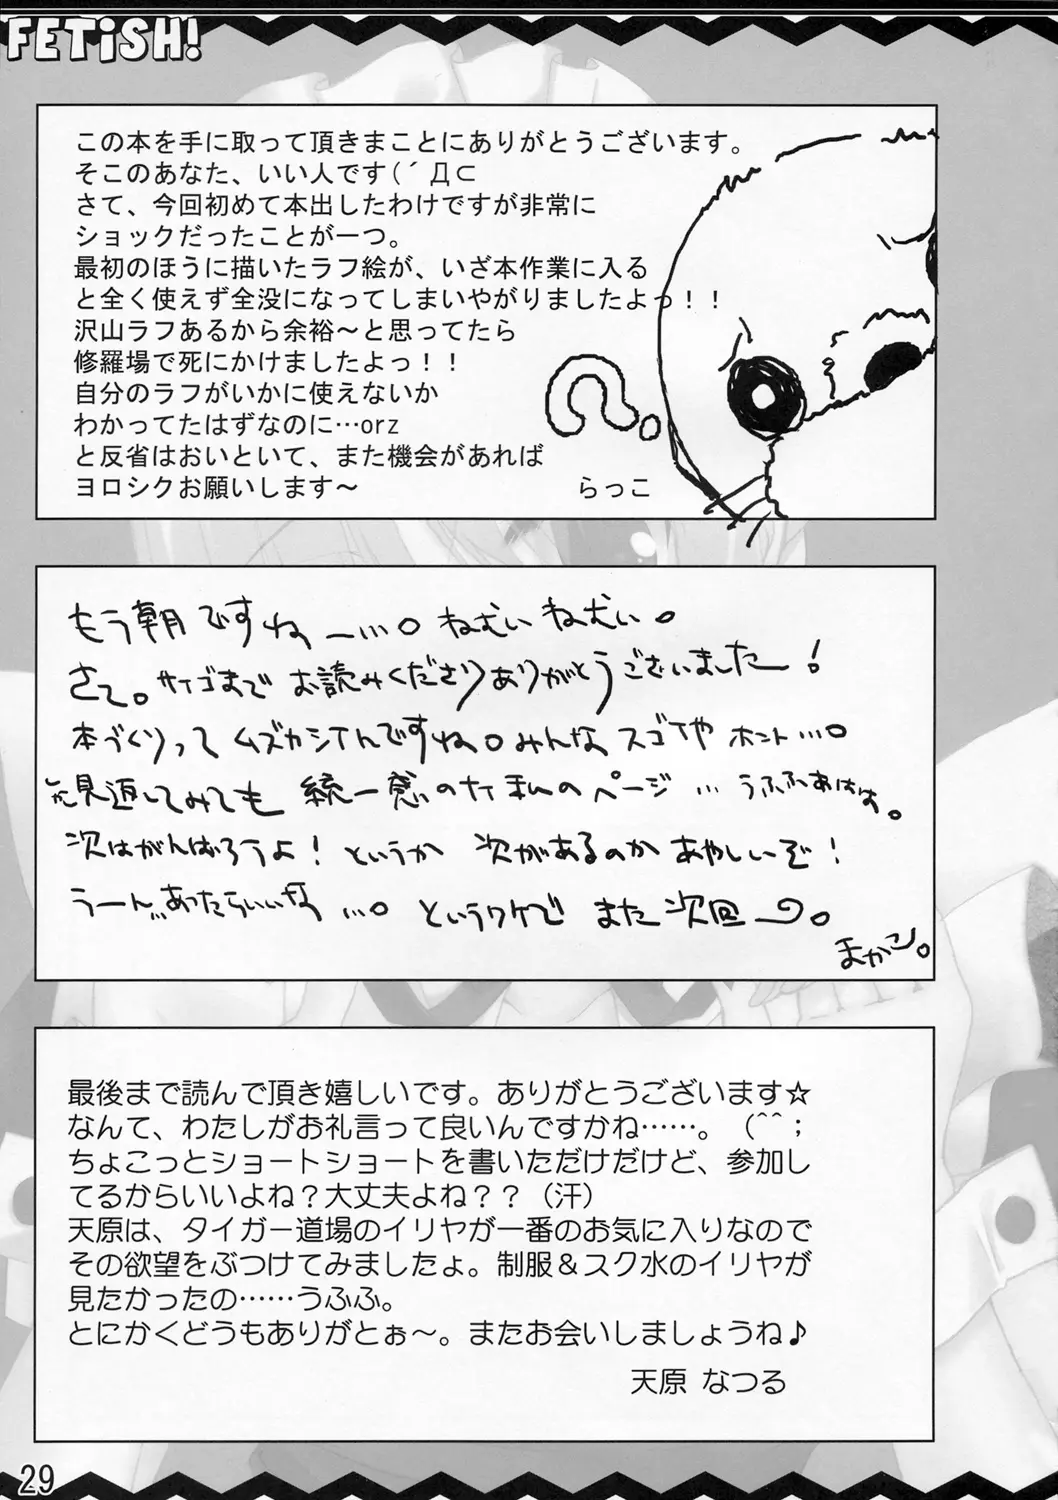 FETiSH!
この本を手に取って頂きまことにありがとうございます。
そこのあなた、いい人です(´Д⊂
さて、今回初めて本出したわけですが非常に
ショックだったことが一つ。
最初のほうに描いたラフ絵が、いざ本作業に入る
と全く使えず全没になってしまいやがりましたよっ！！
沢山ラフあるから余裕～と思ってたら
修羅場で死にかけましたよっ！！
自分のラフがいかに使えないか
わかってたはずなのに…orz
と反省はおいといて、また機会があれば
ヨロシクお願いします～
らっこ
?
もう朝ですねー…。ねむいねむい。
さて。サイゴまでお読みくださりありがとうございましたー！
本づくりってムズカシイんですね。みんなスゴイやホント…。
見返してみても統一感のナイ私のページ…うふふあはは。
次はがんばろうよ！というか次があるのかあやしいぞ！
うーん…あったらいいな…。というワケでまた次回～。
まかこ。
最後まで読んで頂き嬉しいです。ありがとうございます☆
なんて、わたしがお礼言って良いんですかね……。（^^；
ちょこっとショートショートを書いただけだけど、参加し
てるからいいよね？大丈夫よね？？（汗）
天原は、タイガー道場のイリヤが一番のお気に入りなので
その欲望をぶつけてみましたょ。制服＆スク水のイリヤが
見たかったの……うふふ。
とにかくどうもありがとぉ～。またお会いしましょうね♪
天原 なつる
29